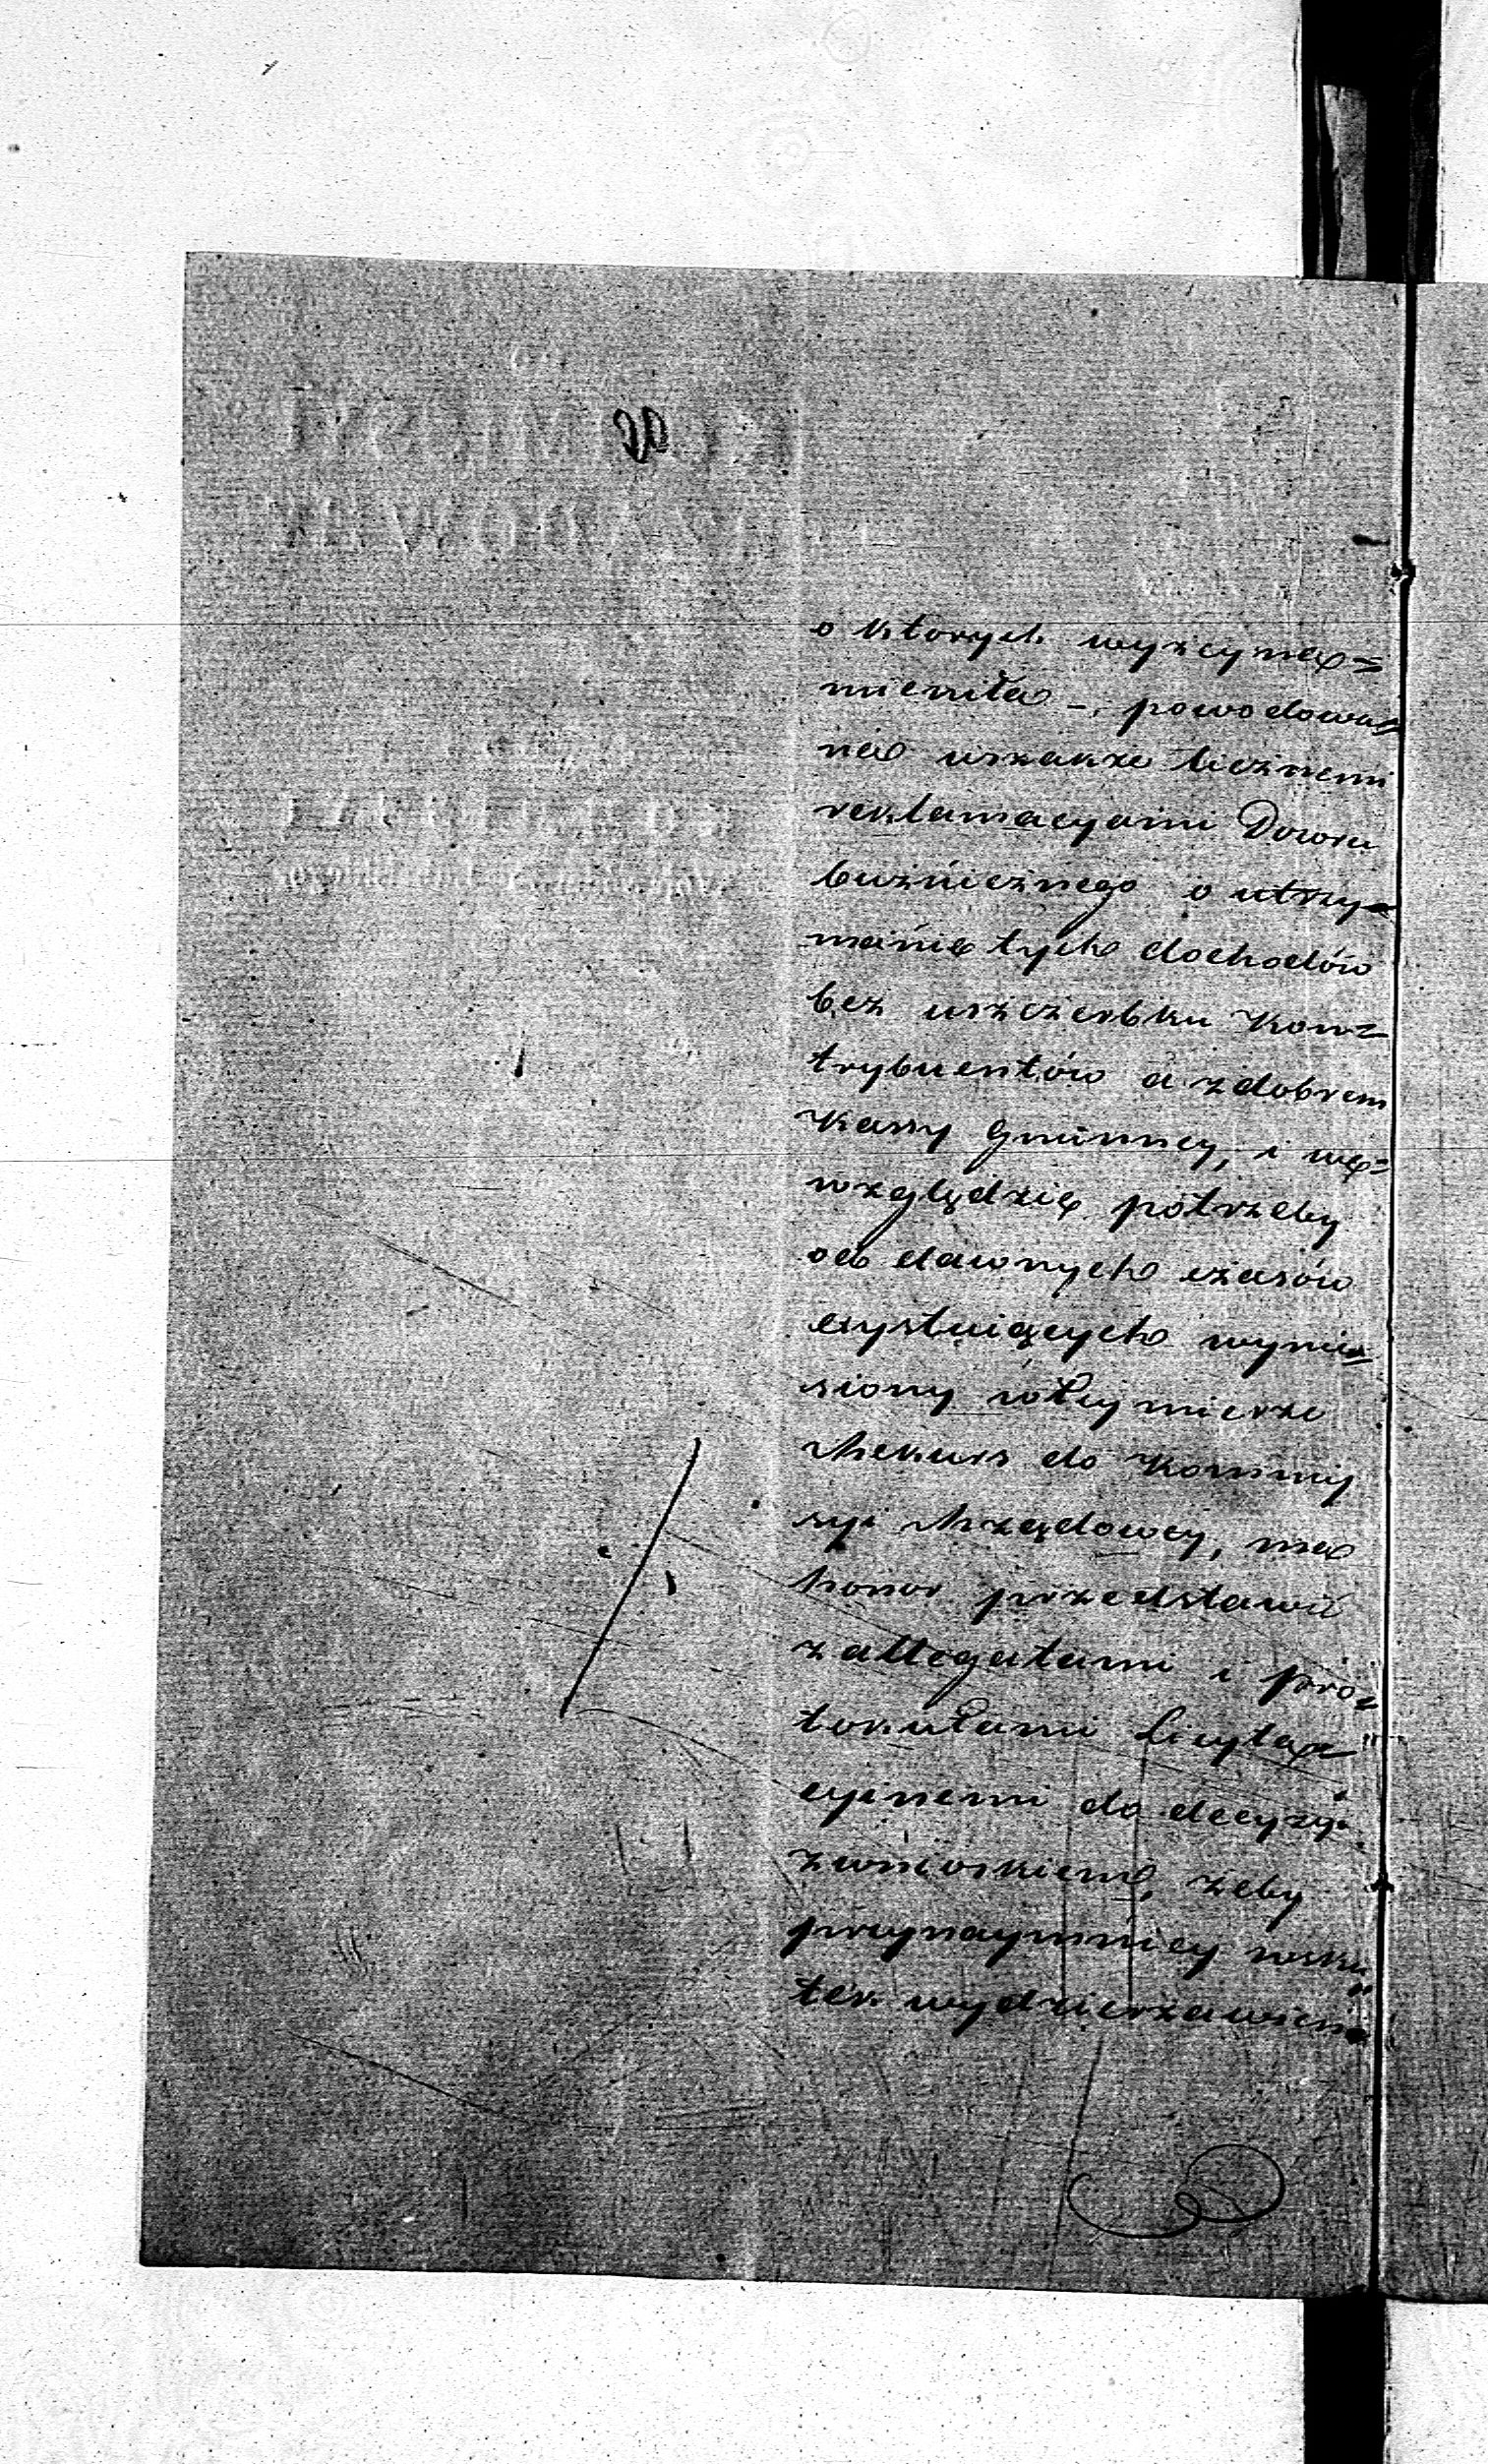 o ktorych wyżeyna=
mieniła -, powodowa=
na wszakże licznemi
reklamacyami Dozoru
bużnicznego o utrzy=
manie tych dochodów
bez uszczerbku Kon=
trybuentów a z dobrem
Kassy Gminney, i we=
względzie potrzeby
od dawnych czasów
exystuiących wynie=
siony w tey mierze
Rekurs do Kommis
syi Rządowey, ma
honor przedstawić
z allegatami i pro=
tokułami licyta=
cyinemi do decyzyi
z wnioskiem, żeby
przynaymniey wsku
tek wydzierżawieni